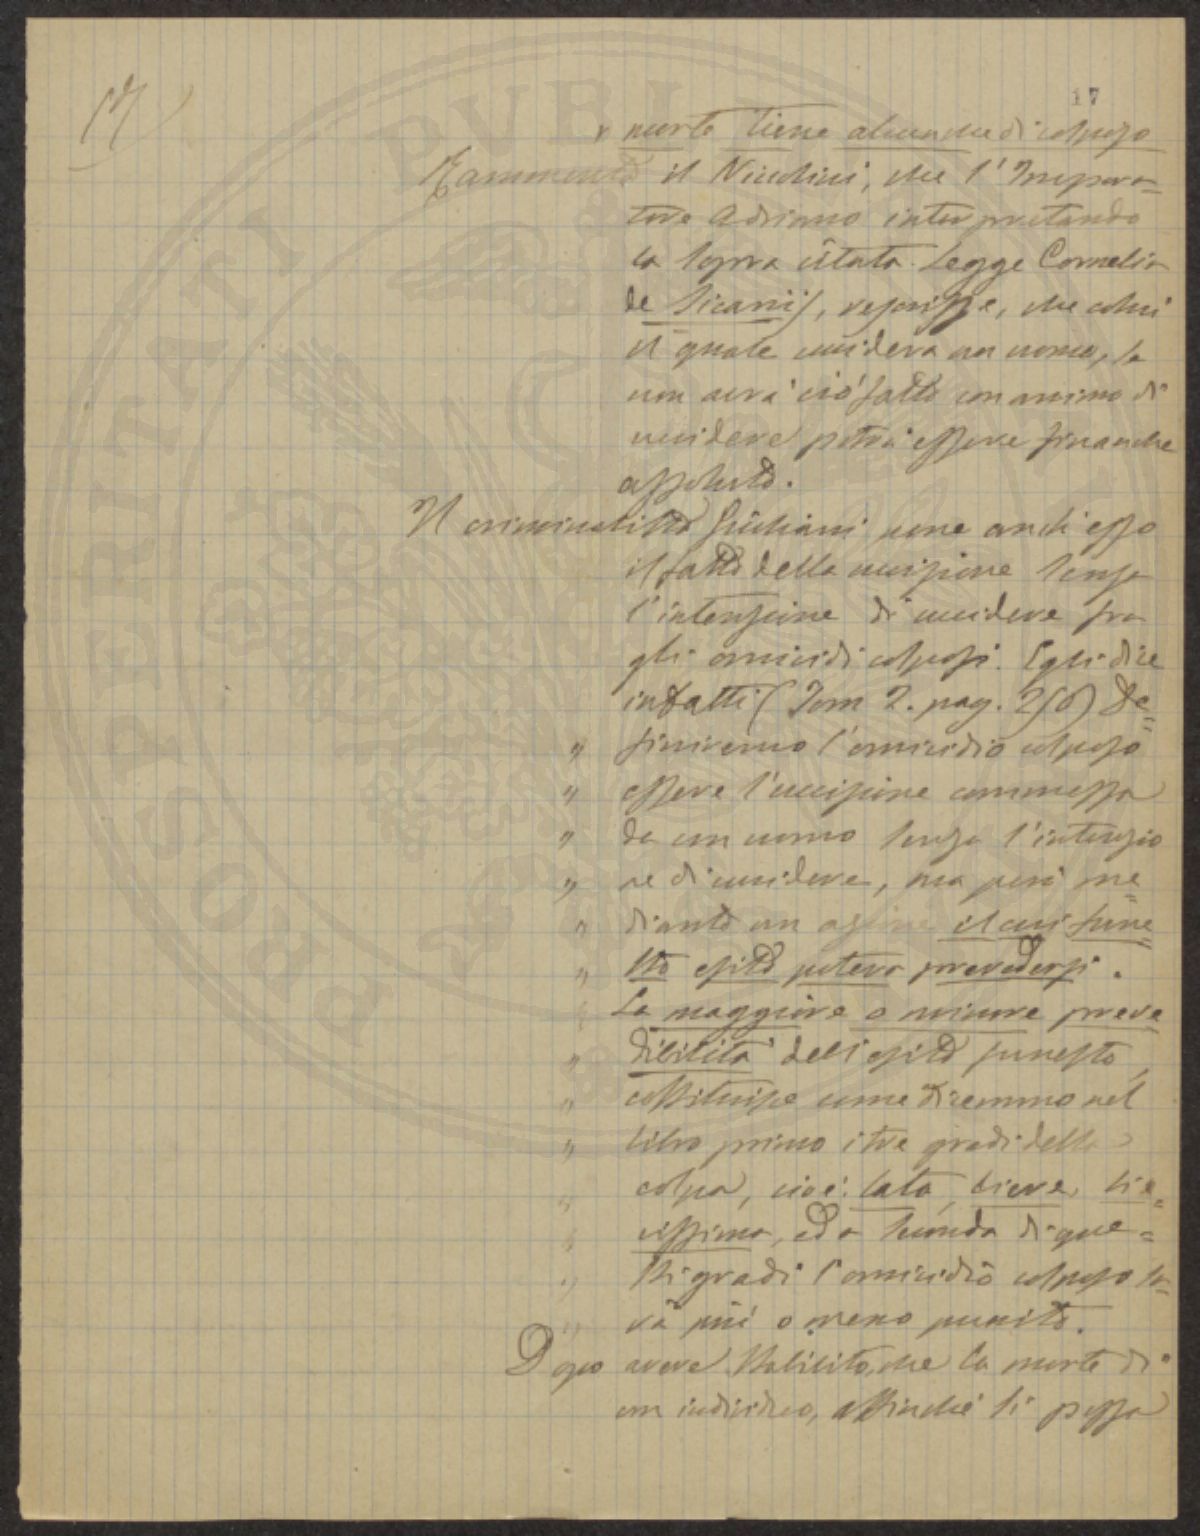 17
(7)
" morte tiene alcunché di colposo
Rammenta il Nicolini, che l'Impera=
tore Adriano interpretando
la sopra citata Legge Cornelia
de Sicariis, rescrisse, che colui
il quale uccideva un uomo, se
non avrà ciò fatto con animo di
uccidere potrà essere finanche
assoluto.
Il criminalista Giuliani pone anch'esso
il fatto della uccisione senza
l'intenzione di uccidere fra
gli omicidi colposi. Egli dice
infatti (Tom 2. pag. 256) De=
" finiremo l'omicidio colposo
" essere l'uccisione commessa
" da un uomo senza l'intenzio
" ne di uccidere, ma però me=
" diante un azione il cui fune=
" sto esito poteva prevedersi.
" La maggiore o minore preve=
" dibilità dell'esito funesto,
" costituisce come diremmo nel
" libro primo i tre gradi della
" colpa, cioè: lata, lieve, lie=
" vissima, ed a seconda di que=
" sti gradi l'omicidio colposo sa=
" rà più o meno punito.
Dopo avere stabilito, che la morte di
un individuo, affinché si possa